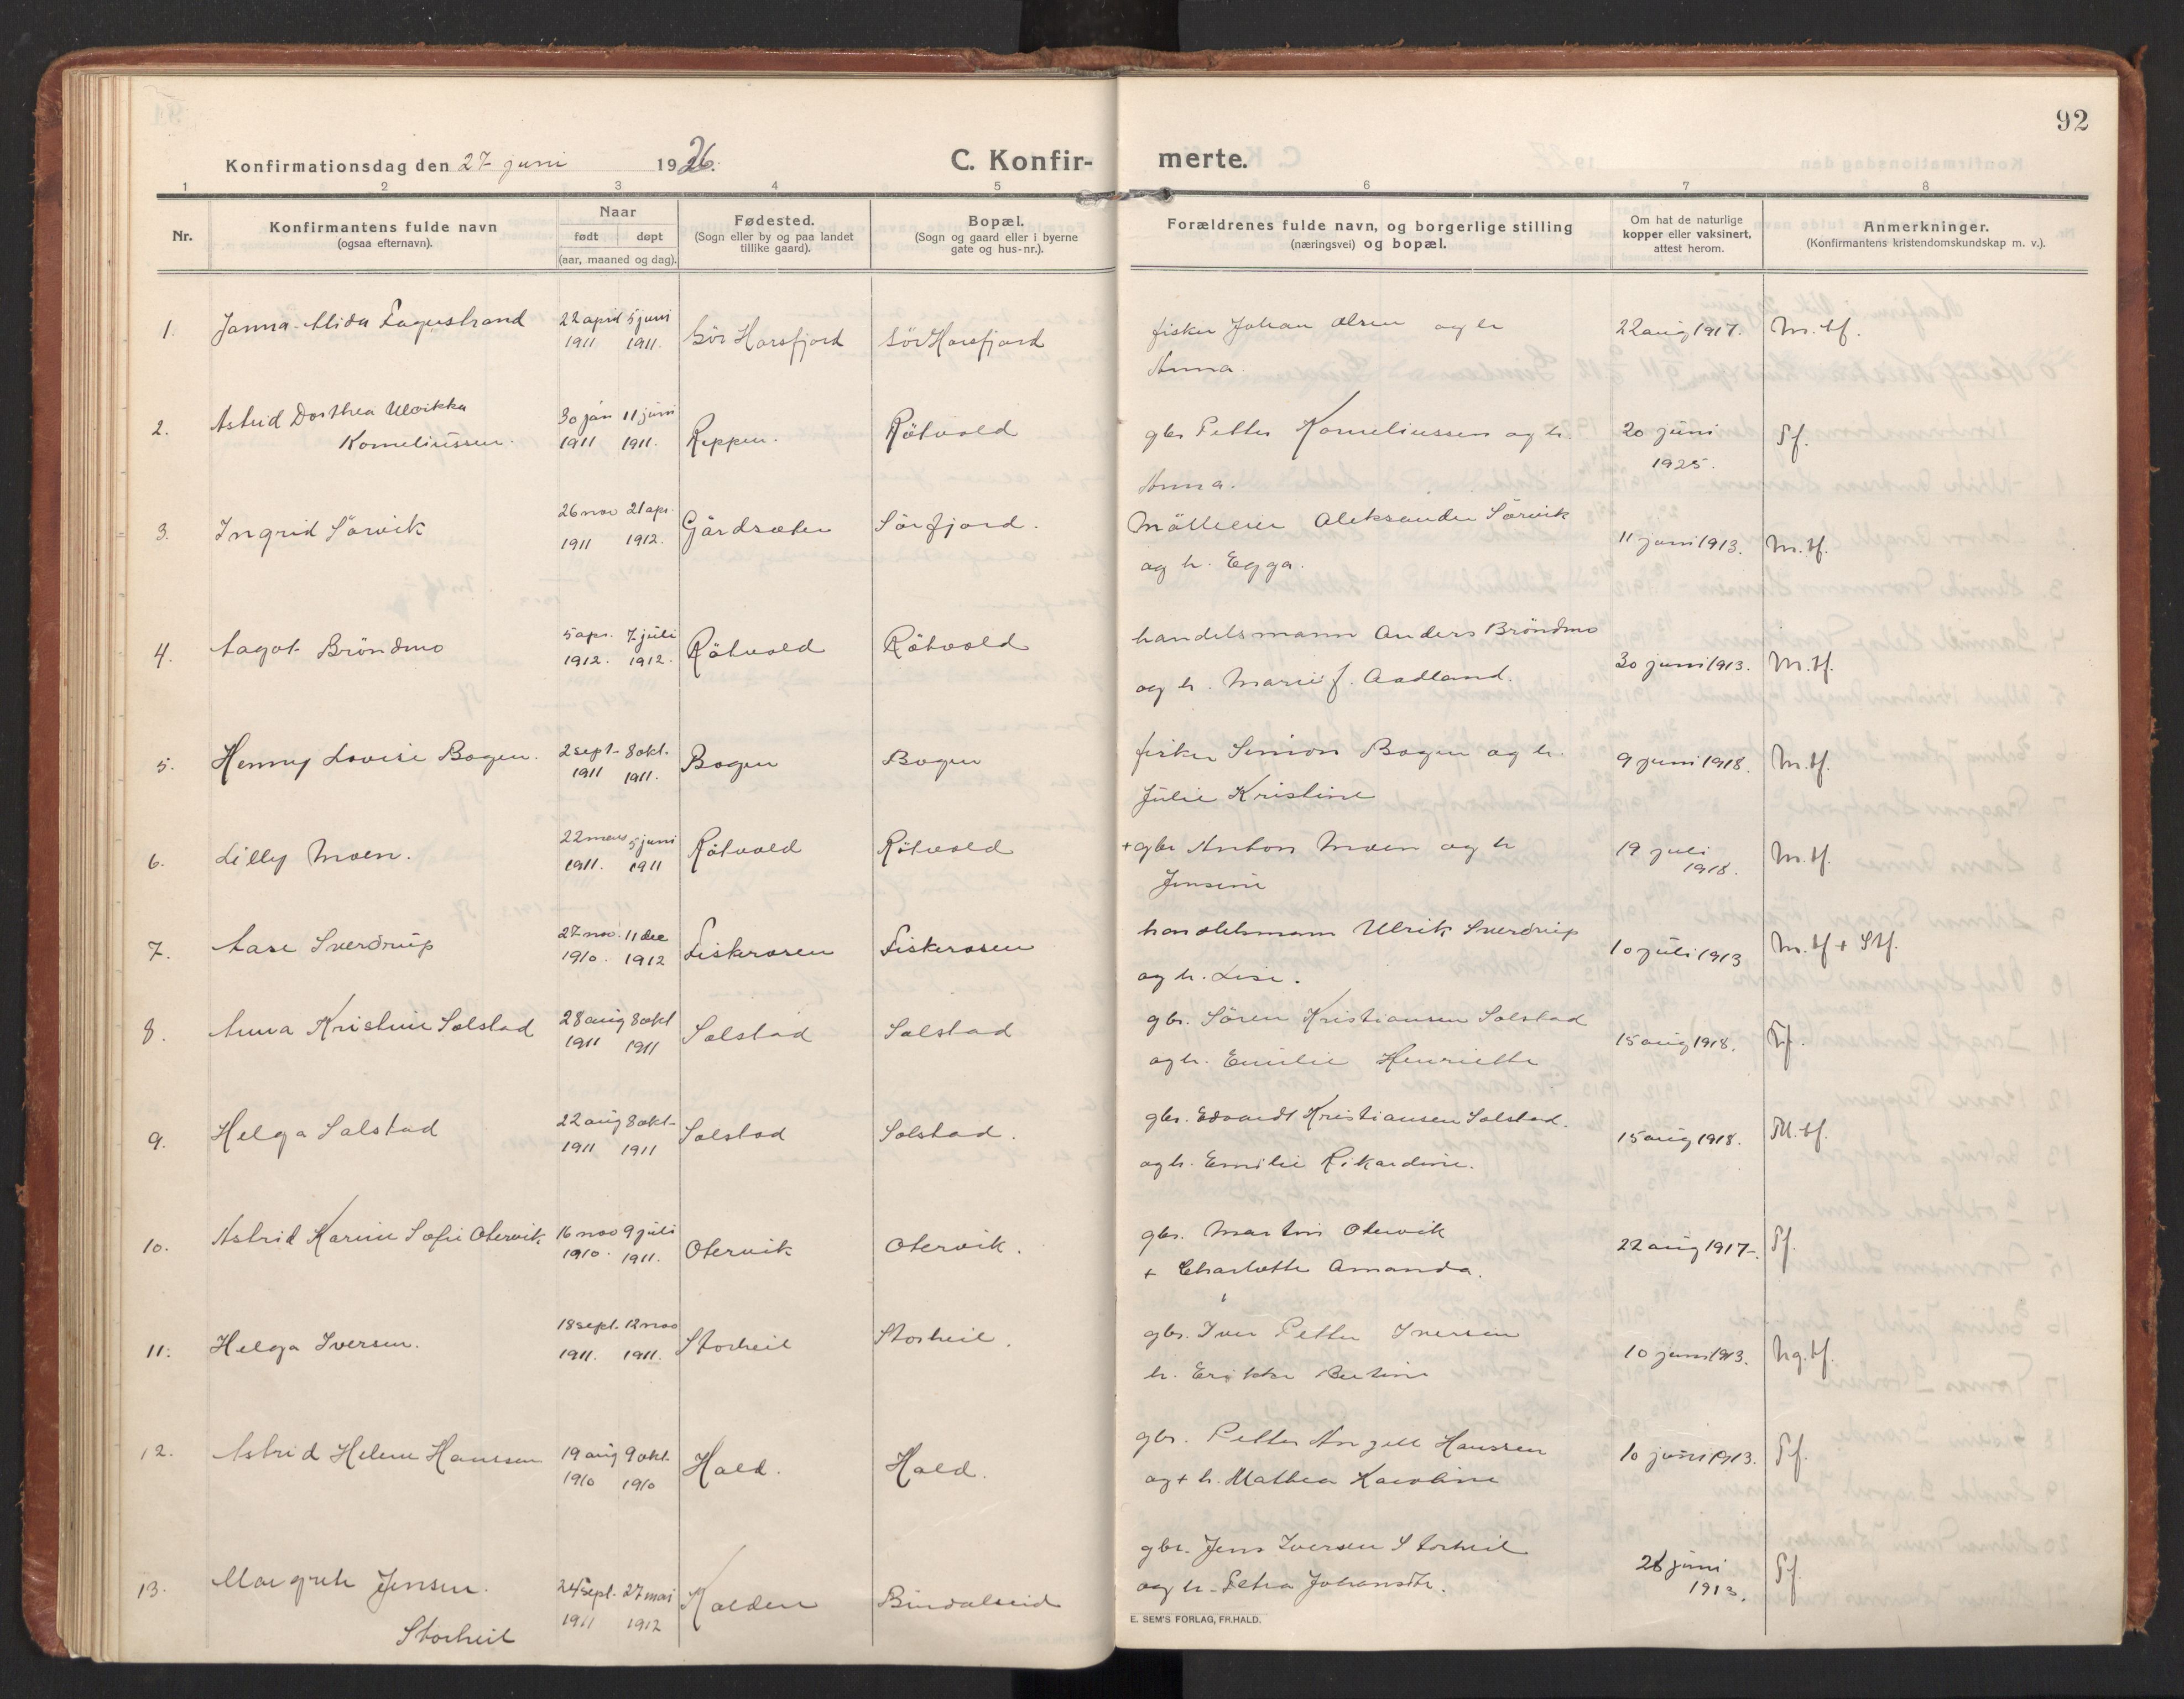 92
Konfirmationsdag den 27 juni 1926.
C. Konfir- merte.
1 2 3 4 5 6 7 8
Nr.
Konfirmantens fulde navn
(ogsaa efternavn).
Naar
født døpt
(aar, maaned og dag).
Fødested.
(Sogn eller by og paa landet
tillike gaard).
Bopæl.
(Sogn og gaard eller i byerne
gate og hus-nr.).
Forældrenes fulde navn, og borgerlige stilling
(næringsvei) og bopæl.
Om hat de naturlige
kopper eller vaksinert,
attest herom.
Anmerkninger.
(Konfirmantens kristendomskundskap m. v.).
1. Janna Alida Fagerstrand 22 april 5 juni Sör Horsfjord Sör Horsfjord fisker Johan Olsen og h 22 aug 1917. M. tf.
1911 1911. Anna.
2. Astrid Dorthea Ulrikka 30 jan 11 juni Reppen. Råtvold gbr Petter Korneliussen og h. 20 juni Tf.
Korneliussen. 1911 1911. Anna. 1925.
3. Ingrid Sörvik 26 nov 21 apr. Gårdsæter Sörfjord. Mölleeier Aleksander Sörvik 11 juni 1913. M. tf.
1911 1912. og h. Egga.
4. Aagot Bröndmo 5 apr. 7 juli Råtvold Råtvold handelsmann Anders Bröndmo 30 juni 1913. M. tf.
1912. 1912. og h. Marie J. Aadland.
5. Henny Lovise Bogen. 2 sept. 8 okt. Bogen Bogen fisker Simon Bogen og h. 9 juni 1918. M. tf.
1911 1911. Julie Kristine
6. Lilly Moen. 22 mars 5 juni Råtvold Råtvold + gbr Anton Moen og h 19 juli M. tf.
1911. 1911 Jensine 1918.
7. Aase Sverdrup 27 nov. 11 dec Fiskerosen Fiskerosen handelsmann Ulrik Sverdrup 10 juli 1913 M. tf + Stf.
1910. 1912 og h. Lise.
8. Anna Kristine Solstad 28 aug 8 okt Solstad Solstad gbr. Sören Kristiansen Solstad 15 aug 1918. Tf.
1911 1911 og h. Emilie Henriette
9. Helga Solstad 22 aug 8 okt. Solstad Solstad. gbr. Edvardt Kristiansen Solstad. 15 aug 1918. M. tf.
1911 1911 og h. Emilie Rikardine.
10. Astrid Karine Sofie Otervik 16 nov 9 juli Otervik Otervik. gbr. Martin Otervik 22 aug 1917. Tf.
1910. 1911. + Charlotte Amanda.
11. Helga Iversen. 18 sept. 12 nov Storheil Storheil. gbr. Iver Petter Iversen 10 juni 1913. Ng. tf.
1911. 1911. h. Erikka
12. Astrid Helene Hanssen 19 aug 9 okt. Hald. Hald. gbr. Petter Angell Hanssen 10 juni 1913. Tf.
1910 1910 og + h. Mathea Karoline
13. Margrete Jensen 24 sept. 27 mai Kalden Bindalseid gbr. Jens Iversen Storheil 28 juni Tf.
Storheil 1911 1912 og h. Petra Johansdtr. 1913.
E. SEM'S FORLAG, FR.HALD.